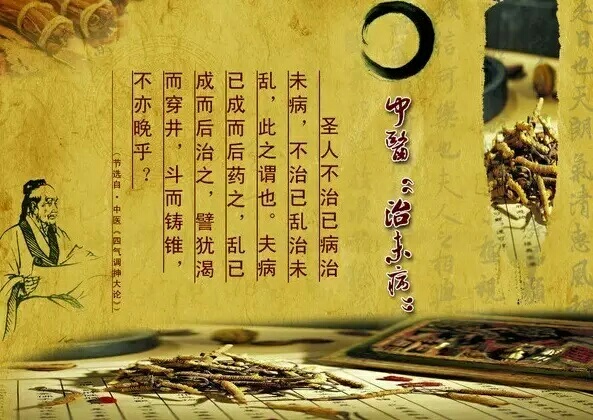 日也天朗氣清惠風
中醫《治未病》
信可樂也夫人之相
圣人不治已病治
未病，不治已乱治未
乱，此之谓也。夫病
已成而后药之，乱已
成而后治之，譬犹渴
而穿井，斗而铸锥，
不亦晚乎？
（节选自·中医《四气调神大论》）